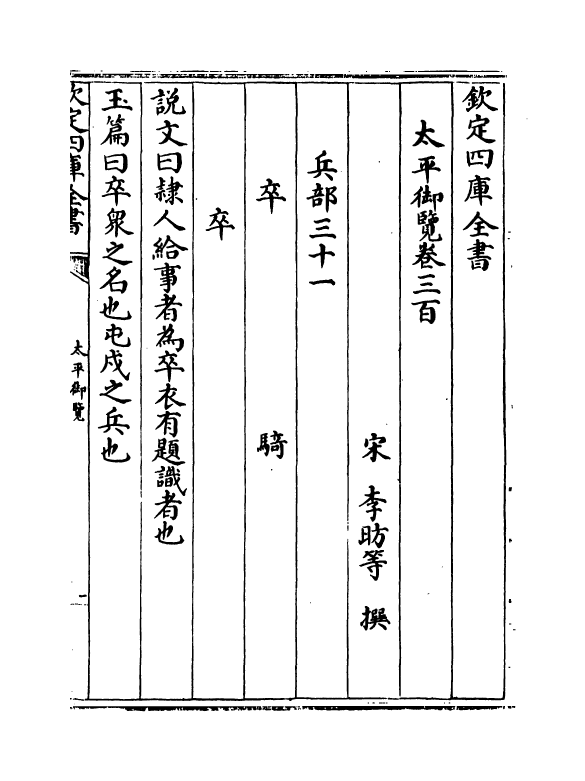 欽定四庫全書
太平御覽卷三百
宋 李昉等 撰
兵部三十一
卒 騎
卒
説文曰隸人給事者為卒衣有題識者也
玉篇曰卒衆之名也屯戍之兵也
欽定四庫全書 太平御覽 一